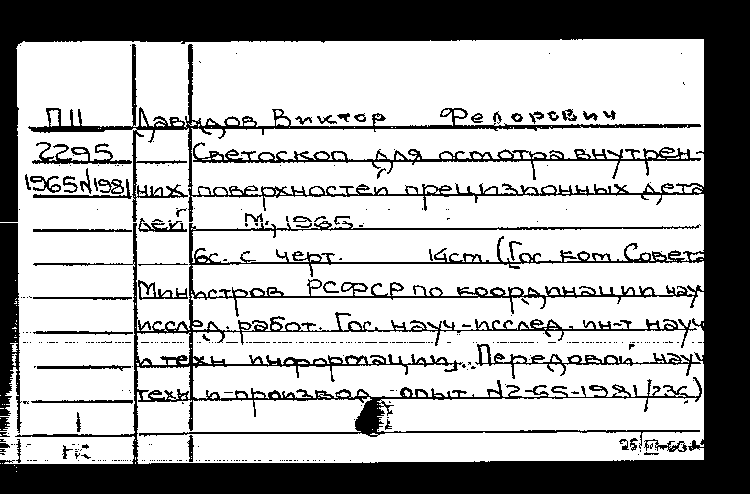 П11 Давыдов, Виктор Федорович
2295 Светоскоп для осмотра внутрен-
1965N1981 них поверхностей прецизионных дета
лей. М., 1965.
6с. с черт. 14см. (Гос. ком. Совета
Министров РСФСР по координации науч
исслед. работ. Гос. науч.-исслед. ин-т науч
и техн информации. Передовой науч
техн и производ. опыт. N2-65-1981/236)
1